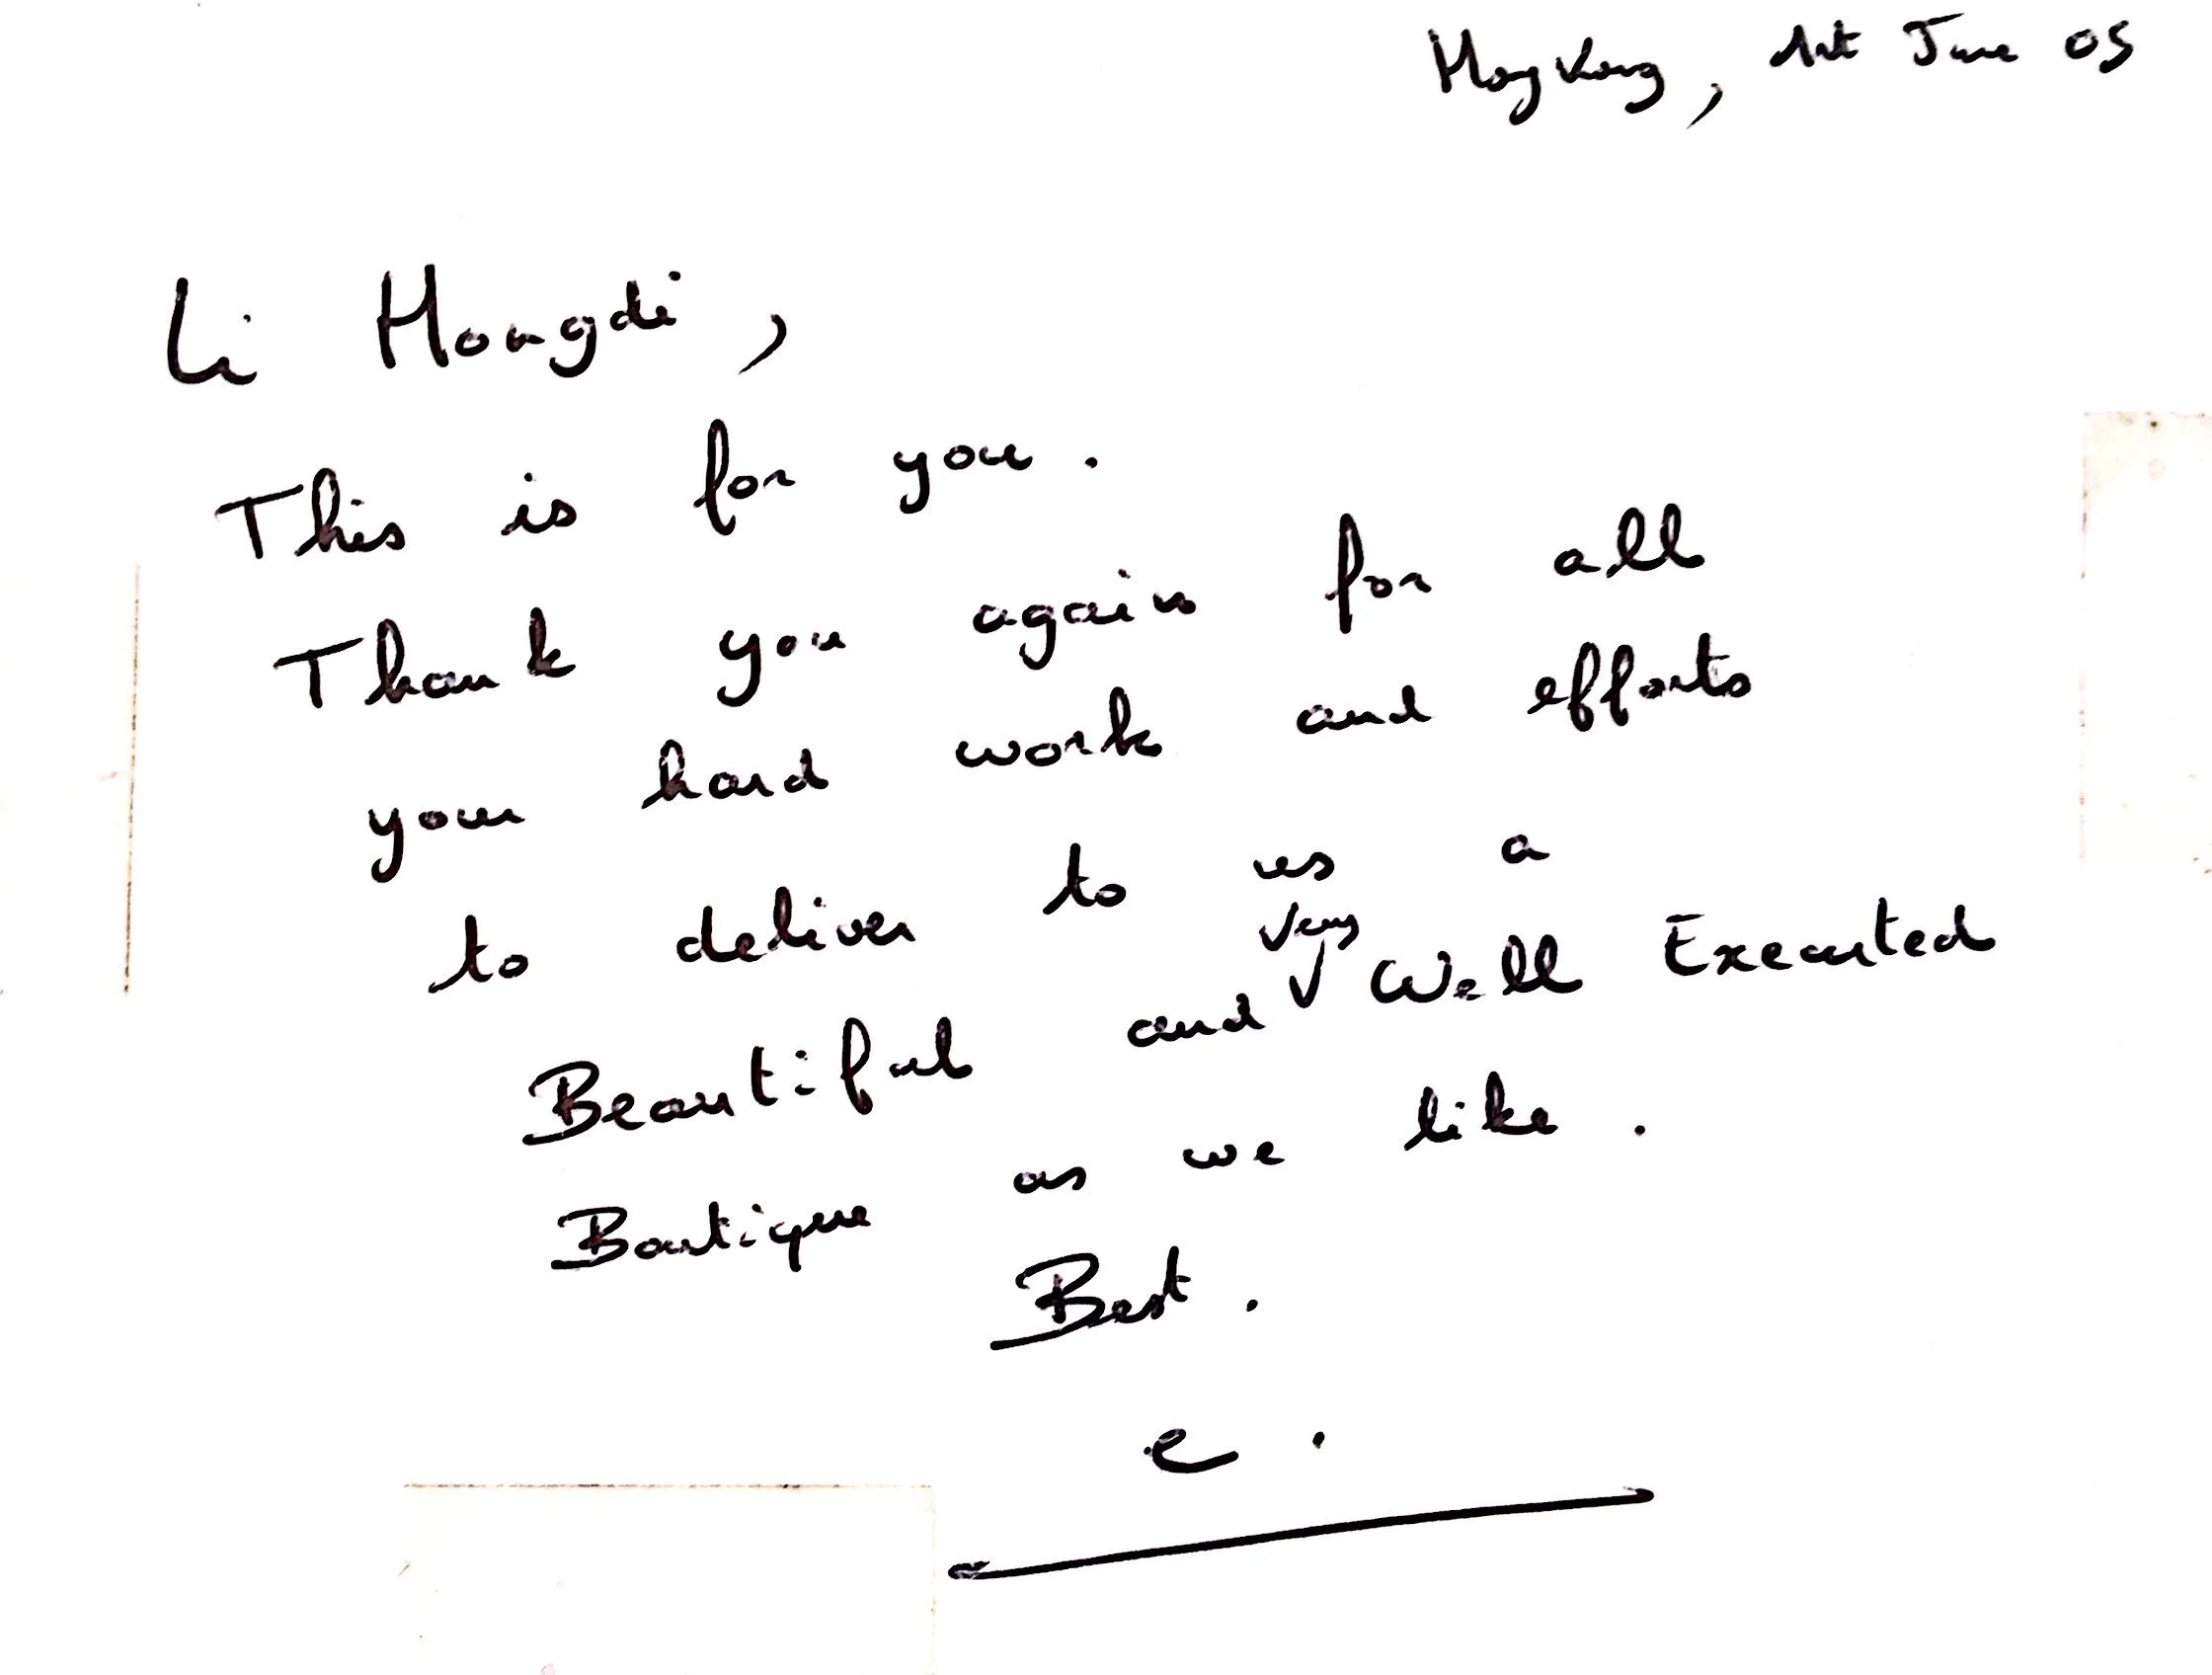 Hong Kong, 1st June 05
Li Hongdi,
This is for you.
Thank you again for all
your hard work and efforts
to deliver to us a
Beautiful and very Well Executed
Boutique as we like.
Best.
e.